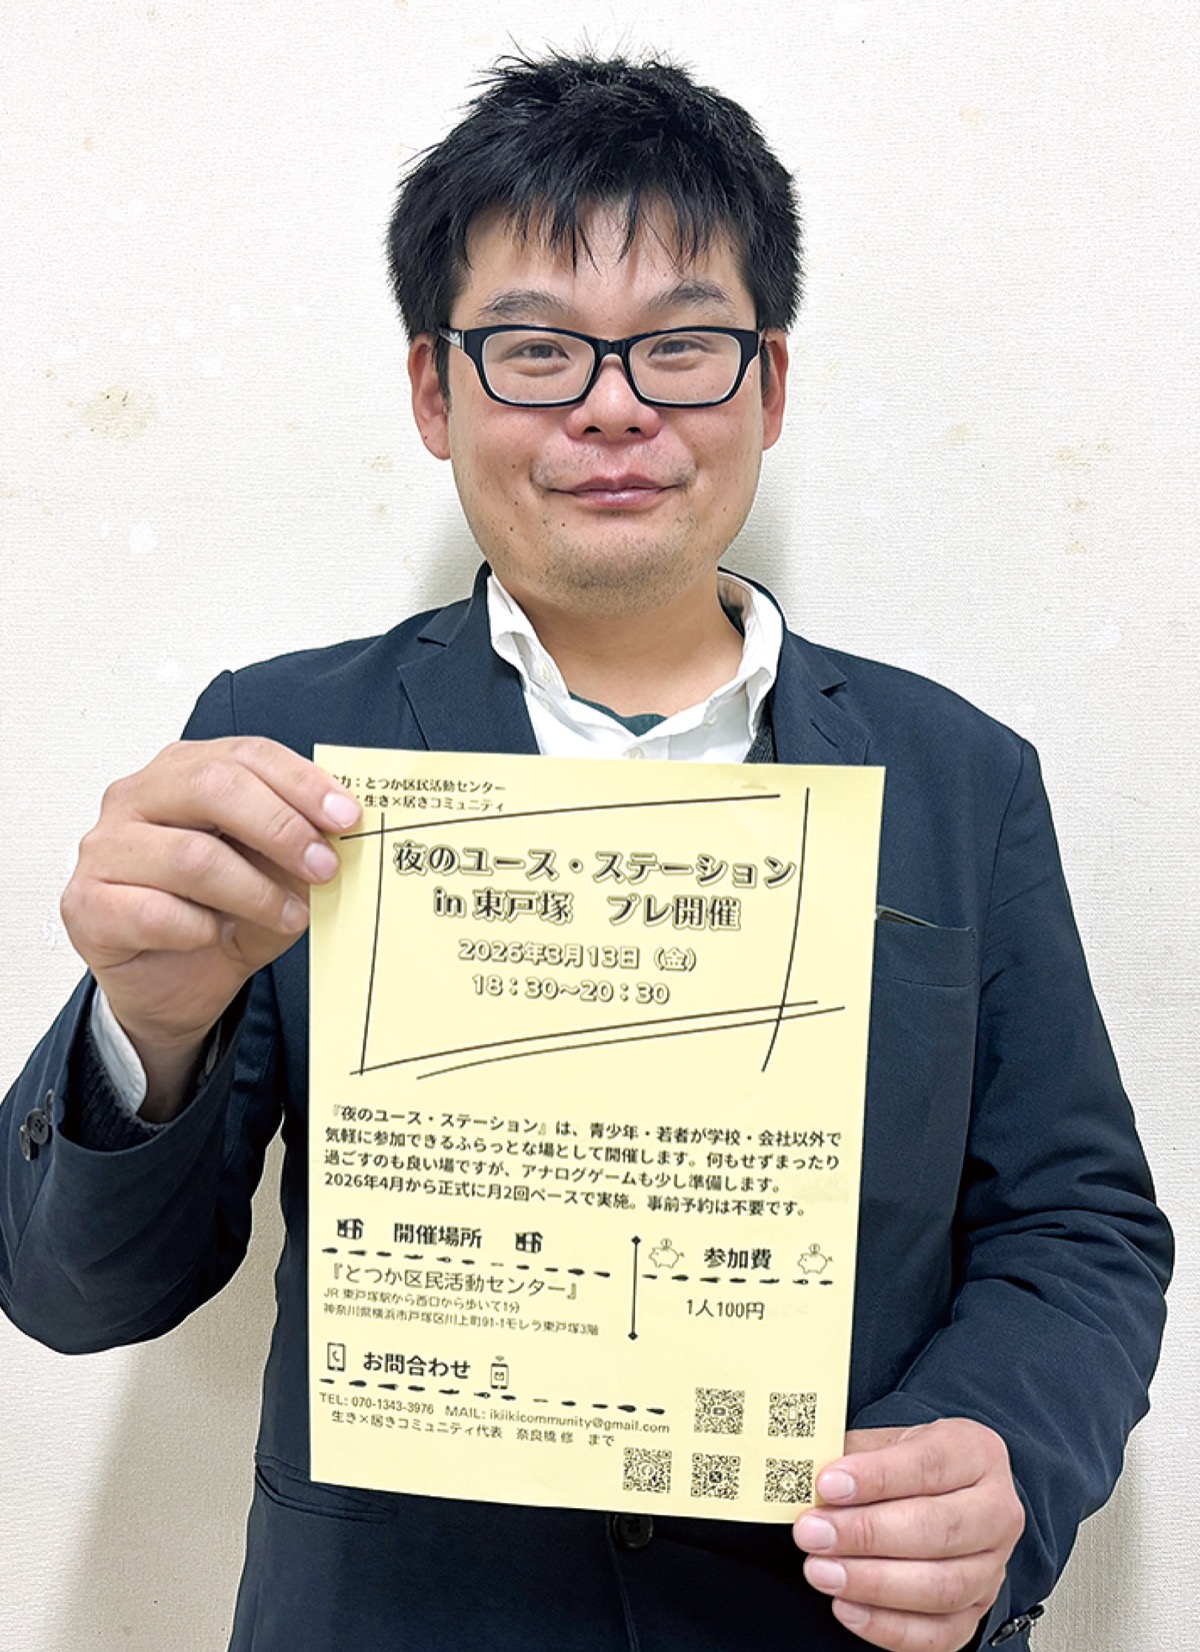 力：とつか区民活動センター
：生き×居きコミュニティ
夜のユース・ステーション
in 東戸塚　プレ開催
2026年3月13日（金）
18：30～20：30
『夜のユース・ステーション』は、青少年・若者が学校・会社以外で
気軽に参加できるふらっとな場として開催します。何もせずまったり
過ごすのも良い場ですが、アナログゲームも少し準備します。
2026年4月から正式に月2回ペースで実施。事前予約は不要です。
開催場所
『とつか区民活動センター』
JR 東戸塚駅から西口から歩いて1分
神奈川県横浜市戸塚区川上町91-1モレラ東戸塚3階
参加費
1人100円
お問合わせ
TEL: 070-1343-3976　MAIL: ikiikicommunity@gmail.com
生き×居きコミュニティ代表　奈良橋 修　まで